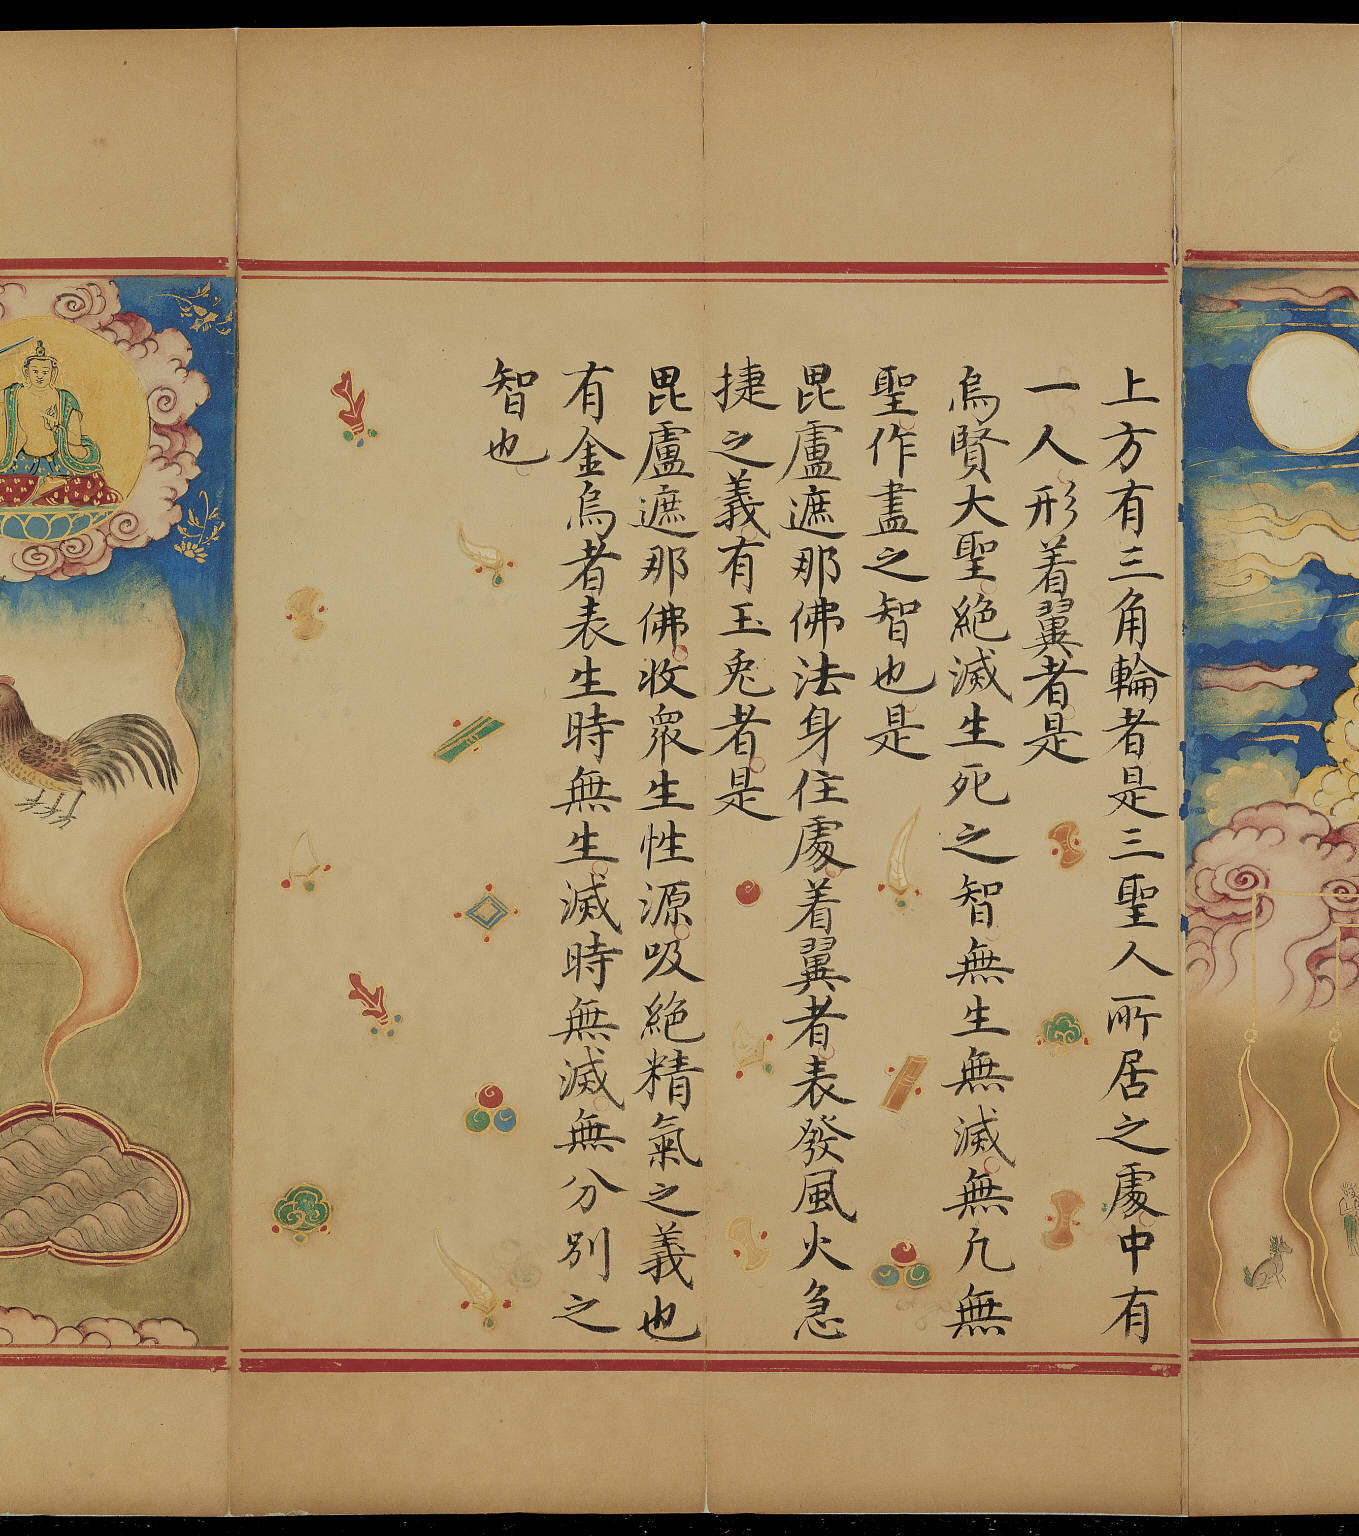 上方有三角輪者是三聖人所居之處中有
一人形着翼者是
烏賢大聖絕滅生死之智無生無滅無凢無
聖作盡之智也是
毘盧遮那佛法身住處着翼者表發風火急
捷之義有玉兎者是
毘盧遮那佛收衆生性源吸絕精氣之義也
有金烏者表生時無生滅時無滅無分別之
智也